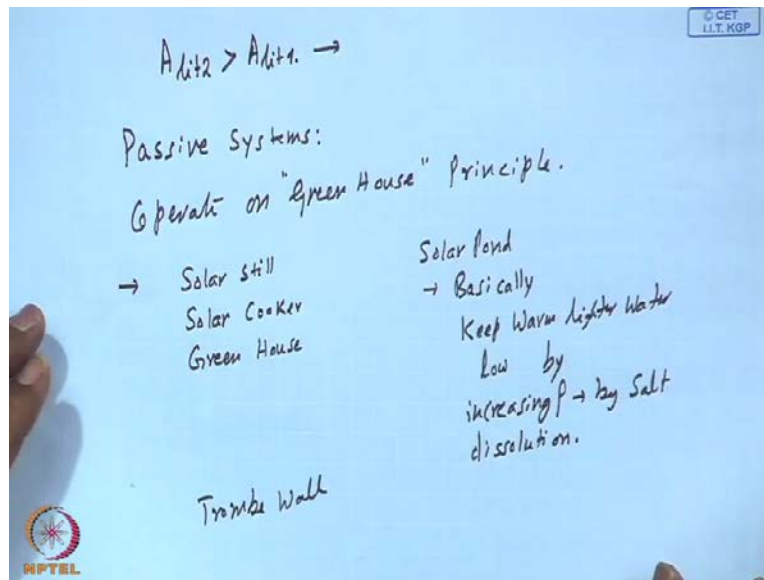 © CET
I.I.T. KGP
A lit2 > A lit1. →
Passive Systems:
Operate on "Green House" Principle.
→ Solar Still
Solar Cooker
Green House
Solar Pond
→ Basically
Keep Warm lighter Water
low by
increasing ρ → by Salt
dissolution.
Trombe Wall
NPTEL